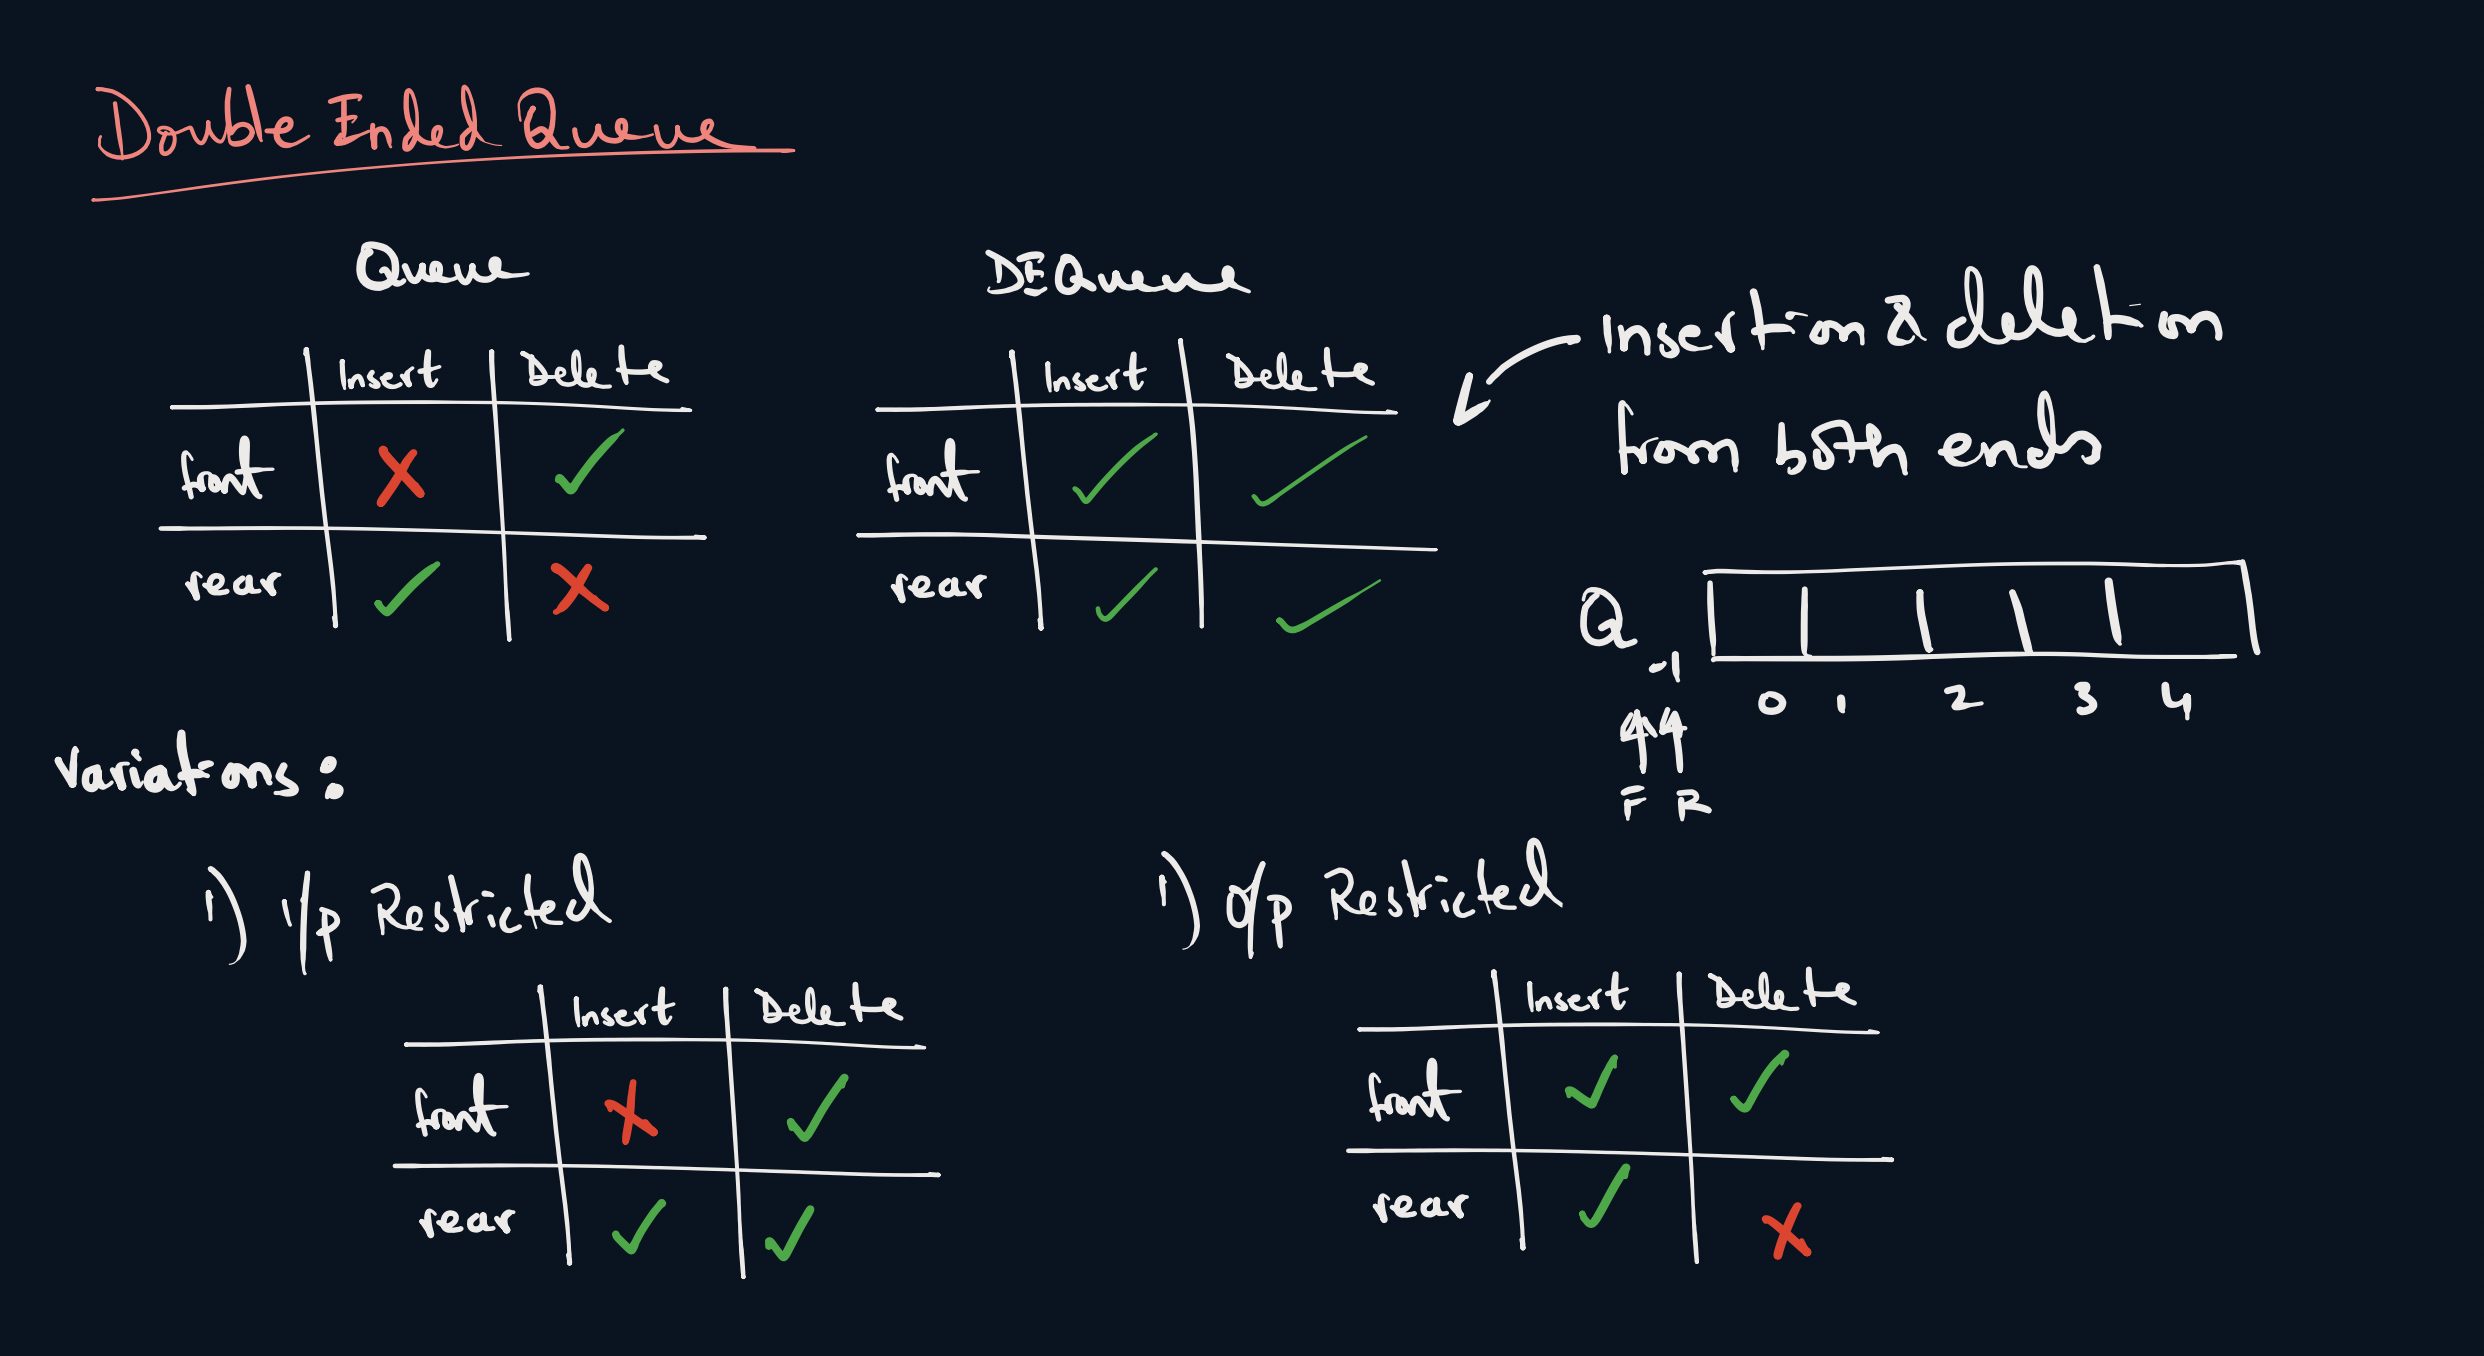 Double Ended Queue
Queue
Insert Delete
front ✗ ✓
rear ✓ ✗
DEQueue
Insert Delete
front ✓ ✓
rear ✓ ✓
Insertion & deletion
from both ends
Q
-1 0 1 2 3 4
F R
Variations:
1) i/p Restricted
Insert Delete
front ✗ ✓
rear ✓ ✓
1) o/p Restricted
Insert Delete
front ✓ ✓
rear ✓ ✗